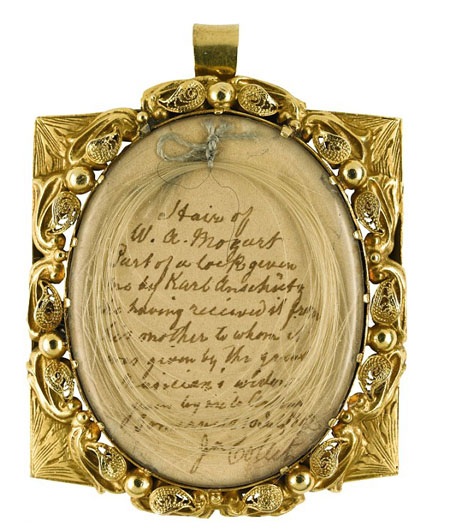 Hair of
W. A. Mozart
Part of a lock given
me by Karl Anschütz
he having received it from
his mother to whom it
was given by the great
musician's widow
by me to